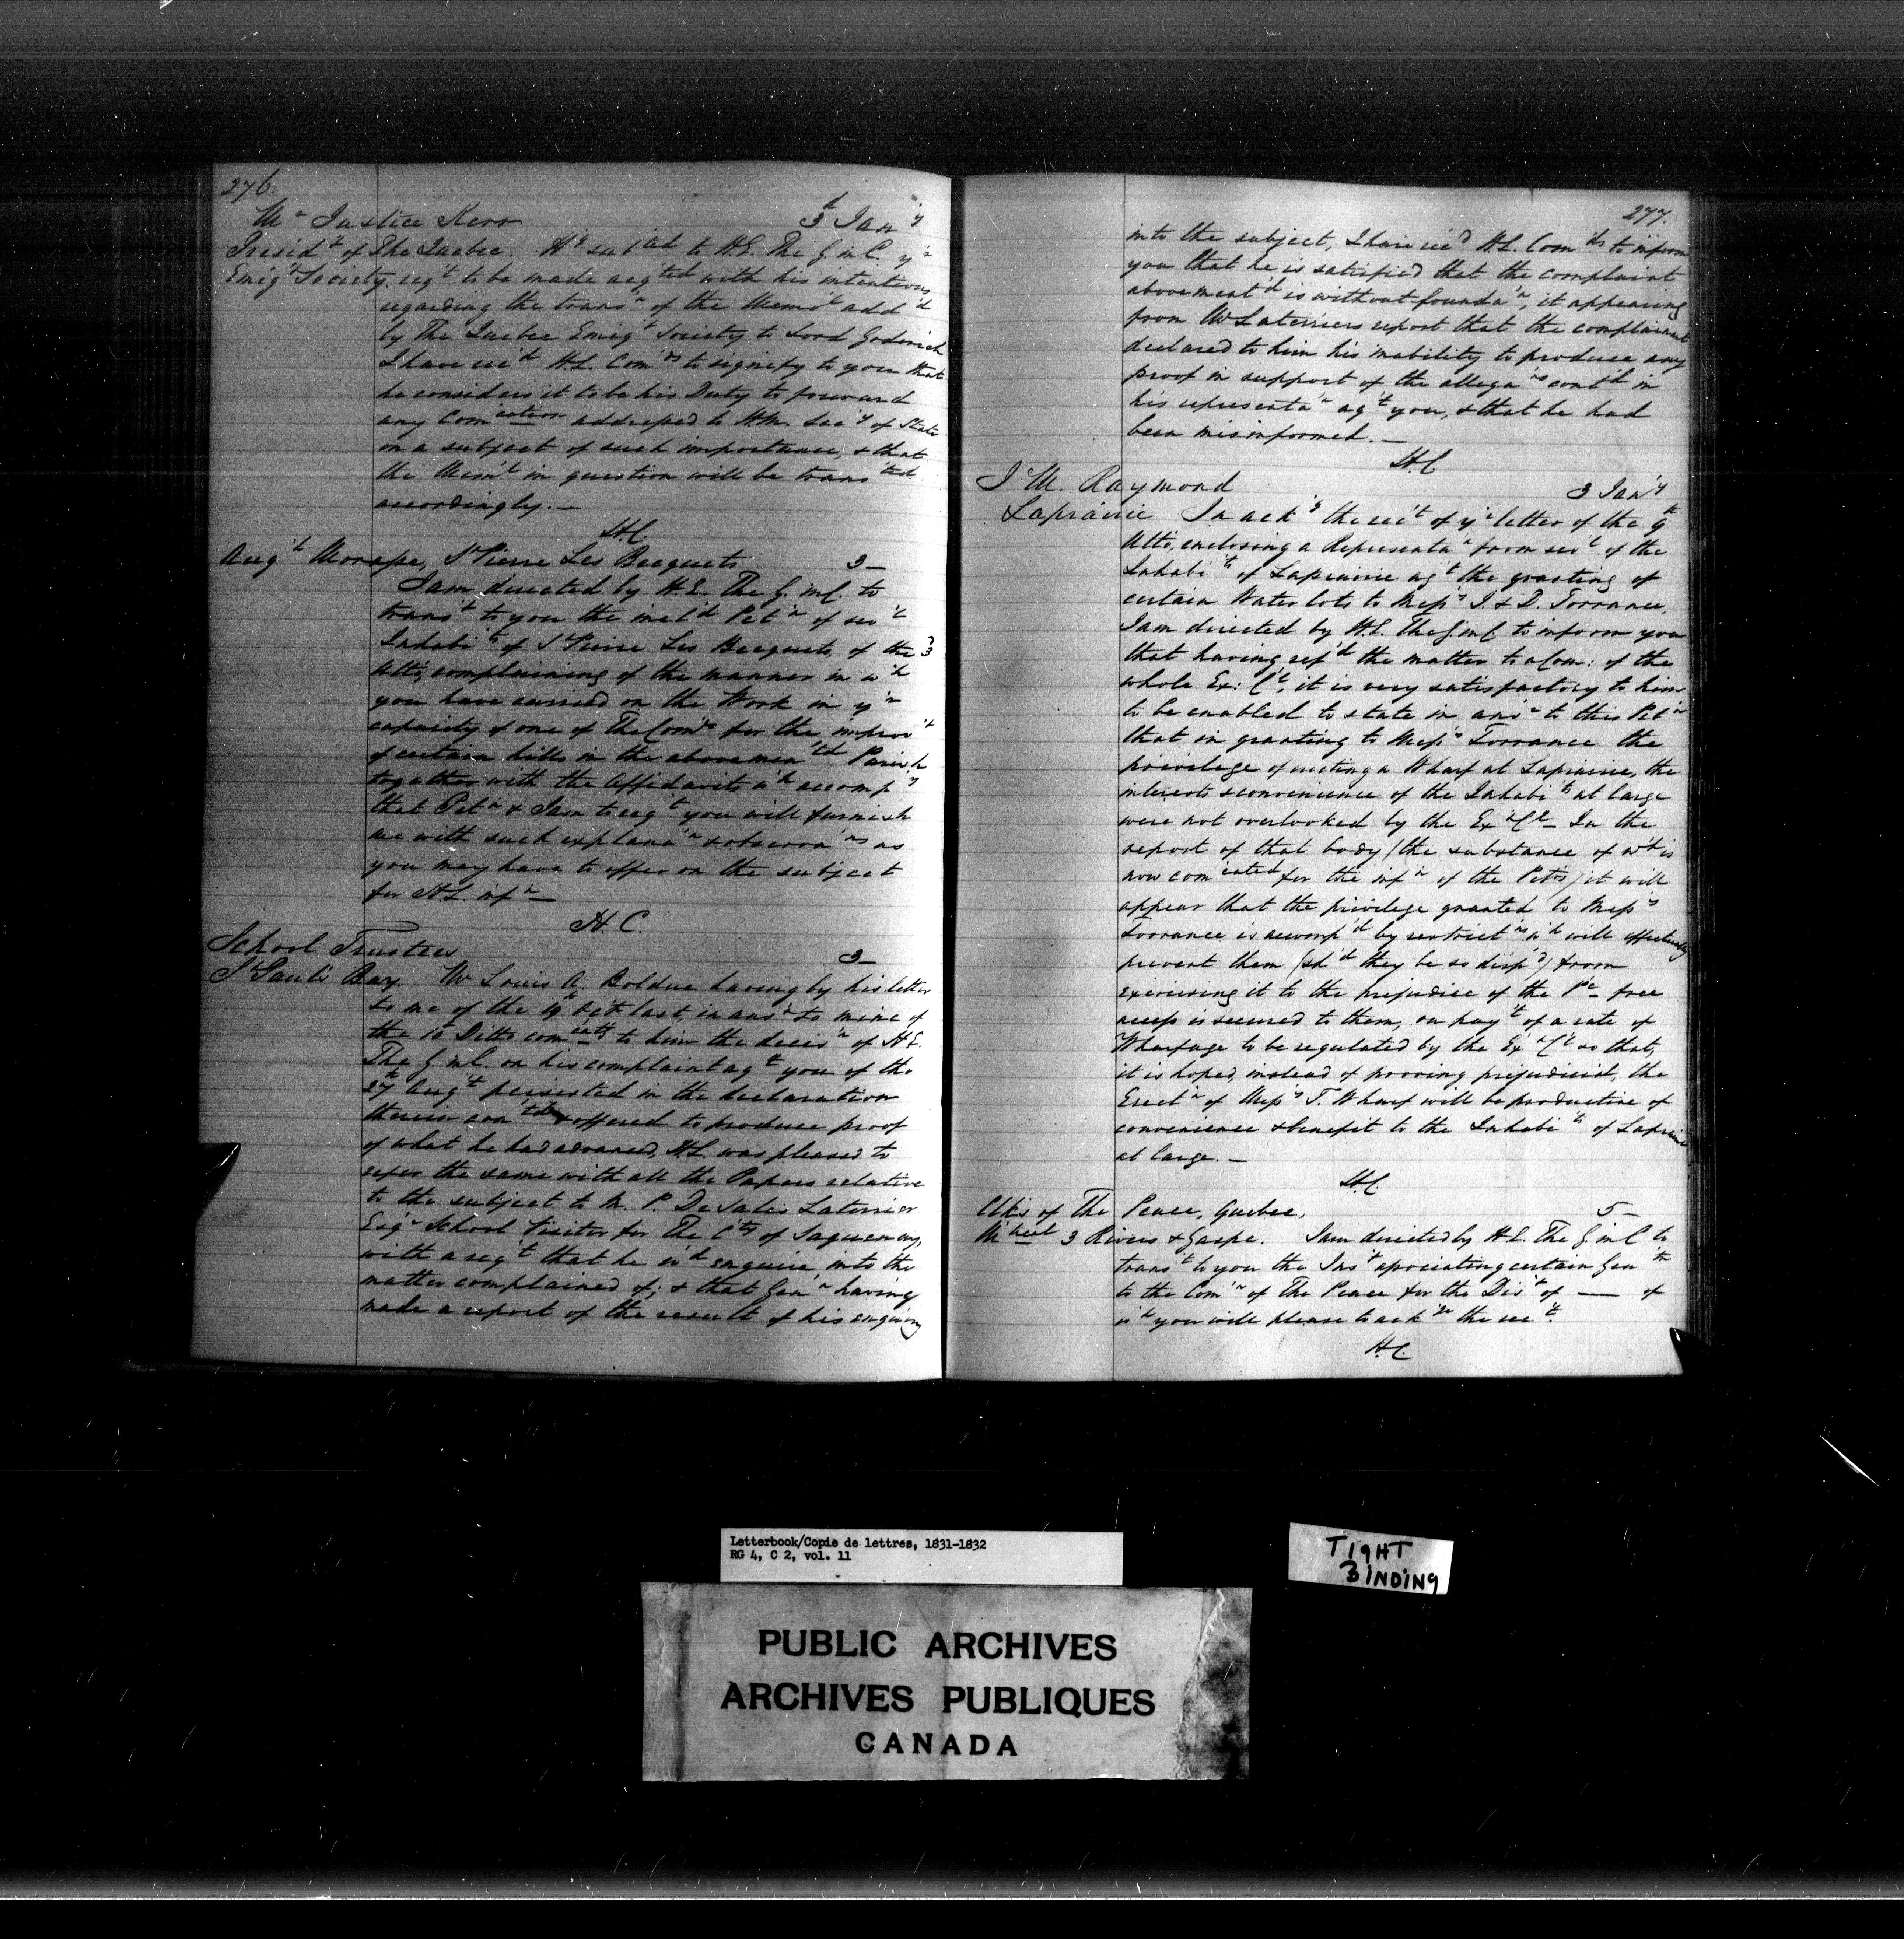 276.
Mr Justice Kerr 3d Jan'y
Presid't of The Quebec. H'g sub'ted to H.E. The G. in C. y'r
Emig't Society, req't to be made acq'ted with his intentions
regarding the trans'n of the Mem'l add'd
by The Quebec Emig't Society to Lord Goderich
I have rec'd H.E. Com'ds to signify to you that
he considers it to be his Duty to forward
any Com'cation addressed to H.M. Sec'y of State
on a subject of such importance, & that
the Mem'l in question will be trans'ted
accordingly.—
H.C.
Aug't Morape, St Pierre Les Becquets 3—
I am directed by H.E. The G. in C. to
trans't to you the incl'd Pet'n of sev'l
Inhabi'ts of St Pierre Les Becquets of the 3
Ulto, complaining of the manner in w'h
you have carried on the Work in y'r
capacity of one of The Com'rs for the improv't
of certain hills in the abovemen'td Parish
together with the Affidavits w'h accomp'y
that Pet'n & I am to req't you will furnish
me with such explana'n & observa'ns as
you may have to offer on the subject
for H.E. inf'n—
H.C.
School Trustees 3—
St Paul's Bay. Mr Louis A. Bolduc having by his letter
to me of the 19th Oct last in ans'r to mine of
the 10th Ditto com'catg to him the decis'n of H.E.
The G. in C. on his complaint ag't you of the
27th Aug't persisted in the declaration
therein con'td & offered to produce proof
of what he had advanced, H.E. was pleased to
refer the same with all the Papers relative
to the subject to M. P. De Sales Laterrier
Esq'r School Visitor for The C'ty of Saguenay,
with a req't that he w'd enquire into the
matter complained of; & that Gen'n having
made a report of the result of his enquiry
277.
into the subject, I have rec'd H.E. Com'ds to inform
you that he is satisfied that the complaint
abovement'd is without founda'n, it appearing
from Mr Laterriers report that the complainant
declared to him his inability to produce any
proof in support of the allega'ns cont'd in
his representa'n ag't you, & that he had
been misinformed.—
H.C
J M. Raymond 3 Jan'y
Laprairie In ack'g the rec't of y'r letter of the 9th
Ulto, enclosing a Representa'n from sev'l of the
Inhabi'ts of Laprairie ag't the granting of
certain Water lots to Mess'rs J. & D. Torrance,
I am directed by H.E. The G. in C to inform you
that having ref'd the matter to a Com: of the
whole Ex: C'l, it is very satisfactory to him
to be enabled to state in ans'r to this Pet'n
that in granting to Mess'rs Torrance the
privilege of erecting a Wharf at Laprairie, the
interests & convenience of the Inhabi'ts at large
were not overlooked by the Ex've C'l— In the
report of that body (the substance of w'h is
now com'cated for the inf'n of the Pet'rs) it will
appear that the privilege granted to Mess'rs
Torrance is accomp'd by restrict'ns w'h will effectually
prevent them (sh'd they be so disp'd) from
exercising it to the prejudice of the P'c— free
access is secured to them, on pay't of a rate of
Wharfage to be regulated by the Ex've C'l so that,
it is hoped, instead of proving prejudicial, the
Erect'n of Mess'rs T. Wharf will be productive of
convenience & benefit to the Inhabi'ts of Laprairie
at large.—
H.C.
Clks of The Peace, Quebec, 5—
M'treal 3 Rivers & Gaspe. I am directed by H.E. The G. in C to
trans't to you the Ins't associating certain Gen'tn
to the Com'n of The Peace for the Dis't of —— of
w'h you will please to ack'ge the rec't.
H.C.
Letterbook/Copie de lettres, 1831-1832
RG 4, C 2, vol. 11
TIGHT
BINDING
PUBLIC ARCHIVES
ARCHIVES PUBLIQUES
CANADA